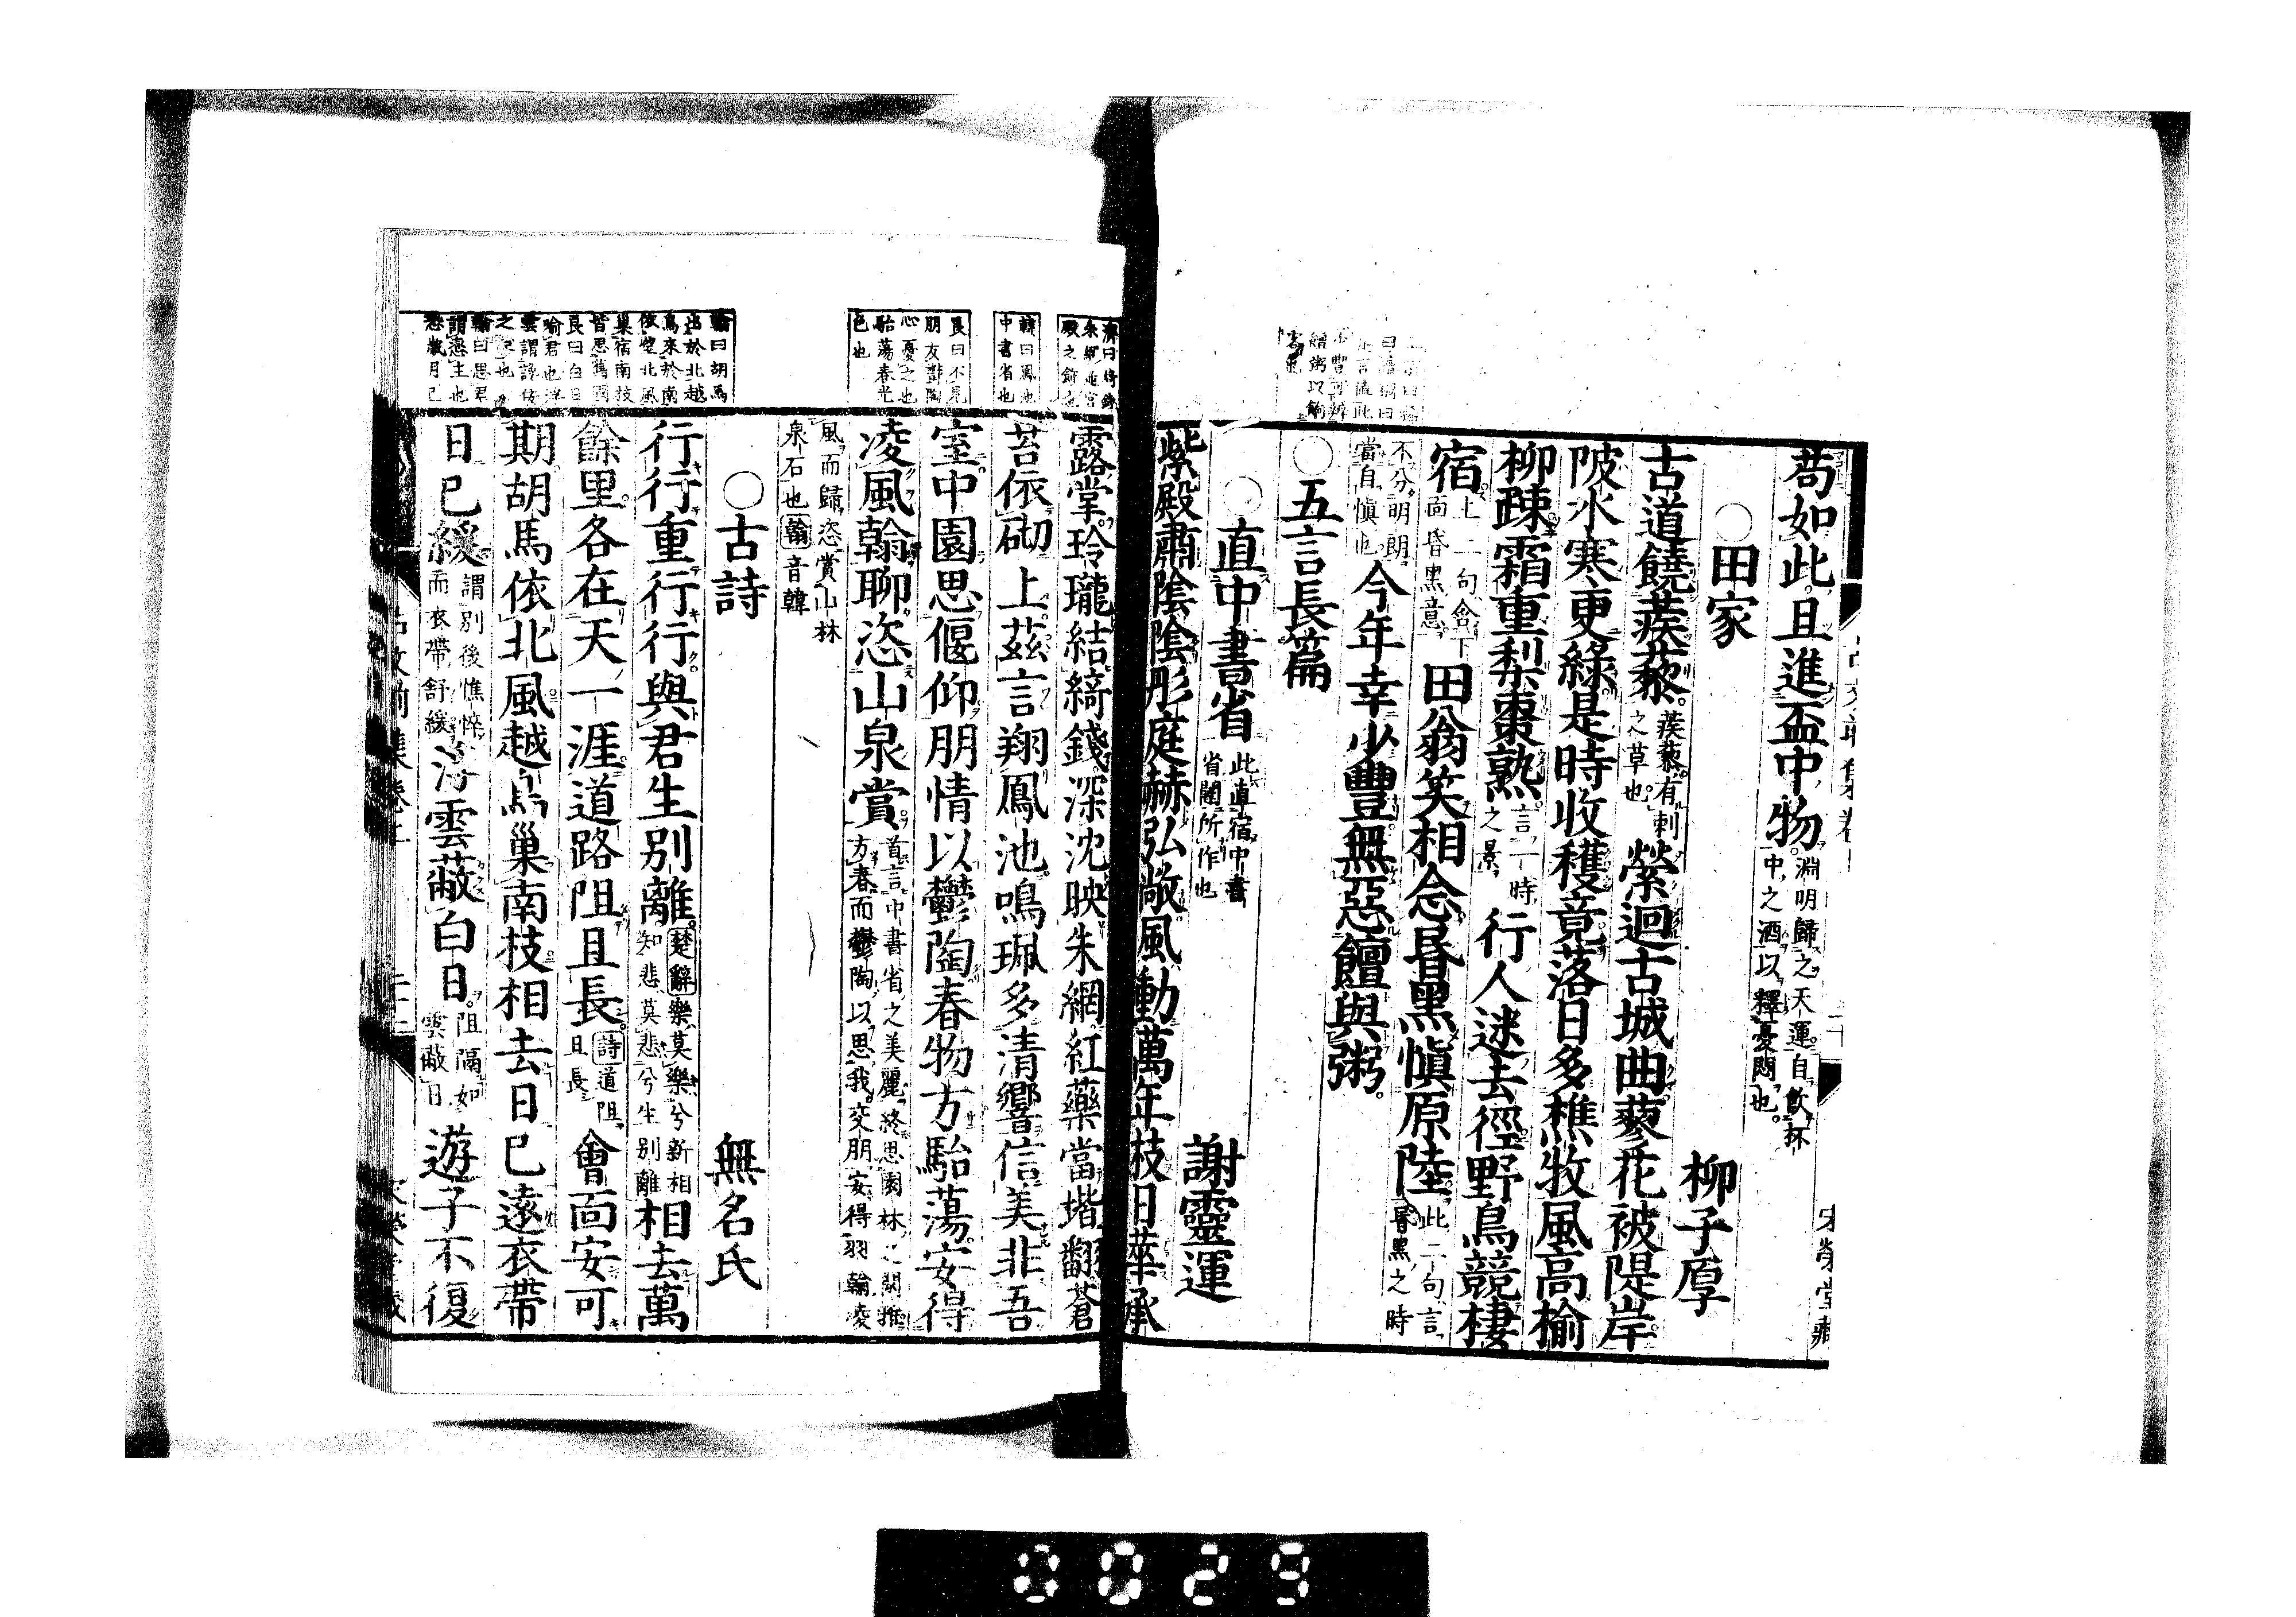 苟如此且進盃中物 淵明歸之天運自飲杯
中之酒以釋憂悶也
○田家 柳子厚
古道饒蒺藜 蒺藜有刺
之草也 縈迴古城曲蓼花被隄岸
陂水寒更綠是時收穫竟落日多樵牧風高榆
柳疎霜重梨棗熟 言一時
之景 行人迷去徑野鳥競棲
宿 上二句含下
面昏黑意 田翁笑相念昏黑慎原陸 此二句言
昏黑之時
不分明朗
當自慎也 今年幸少豐無惡饘與粥
○五言長篇
○直中書省 此直宿中書
省閣所作也 謝靈運
紫殿肅陰陰彤庭赫弘敞風動萬年枝日華承
露掌玲瓏結綺錢深沈映朱網紅藥當堦翻蒼
苔依砌上茲言翔鳳池鳴珮多清響信美非吾
室中園思偃仰朋情以鬱陶春物方駘蕩安得
凌風翰聊恣山泉賞 首言中書省之美麗終思園林之閑雅
方春而鬱陶以思我交朋安得羽翰凌
風而歸恣賞山林
泉石也 翰音韓
○古詩 無名氏
行行重行行與君生別離 楚辭樂莫樂兮新相
知悲莫悲兮生別離 相去萬
餘里各在天一涯道路阻且長 詩道阻
且長 會面安可
期胡馬依北風越鳥巢南枝相去日已遠衣帶
日已緩 謂別後憔悴
而衣帶舒緩 浮雲蔽白日 阻隔如
雲蔽日 遊子不復
韓曰鳳池
中書省也
良曰不見
朋友鬱陶
心憂之也
駘蕩春光
色也
翰曰胡馬
出於北越
鳥來於南
依望北風
巢宿南枝
皆思舊國
良曰白日
喻君也浮
雲謂讒佞